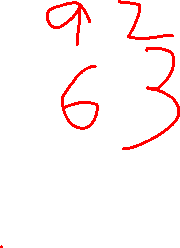 92
63